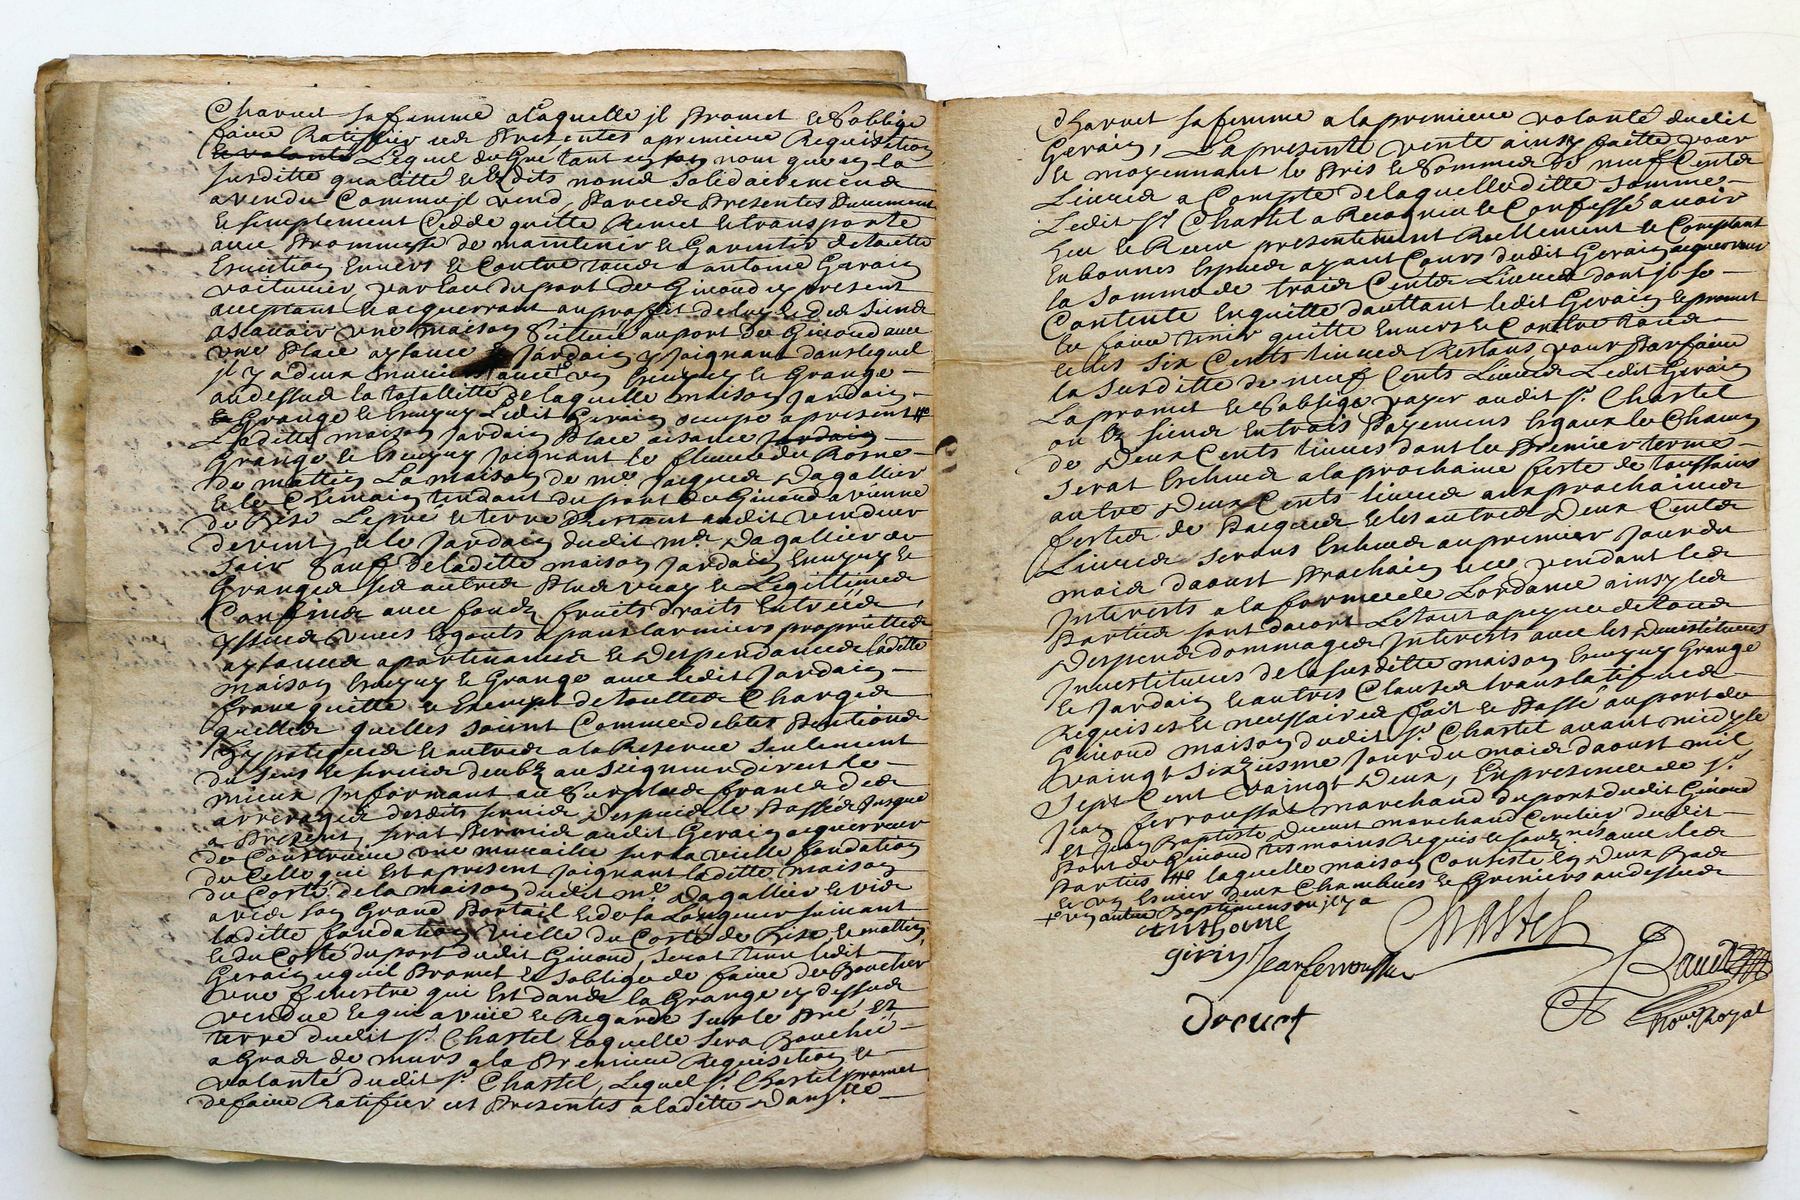 Charvet sa femme a laquelle jl Promet et Soblige
faire Ratiffier ces Presentes a premiere Requisition
et volonté Lequel de Gré tant en son nom que en la
susditte qualitté et dits noms Solidairement
a vendu Comme jl vend, Par ces Presentes Purement
et simplement Cedde quitte Remet et transporte
avec Prommesse de maintenir et Garentir de toutte
Eviction Envers et Contre tous a antoine Gerain
voiturier par eau du port de Giroud cy present
acceptant et acquerrant au proffit de luy et des siens
ascavoir une maison Scittuée au port de Giroud avec
une Place aysance et Jardain y Joignant dans lequel
jl y a deux un Ecuyry et Grange
au dessus la totallitté de laquelle maison Jardain
et Grange et Ecuyry Ledit Gerain occupe a present
Laditte maison Jardain Place aisance Jardain
Grange et Ecuyry Joignant le fleuve du Rosne
de mattin La maison de me Jacques Dagallier
et le Chemain tendant du port de Giroud a vienne
de Bise Le pré et terre Restant audit vendeur
de vent, et le Jardain dudit me Dagallier de
soir Sauf de laditte maison Jardain Ecuyry et
Granges ses autres Plus vray et Legittimes
Confins avec fonds fruits droits Entrées,
yssues vues Egouts apans larmiers proprietes
aysances apartenances et Despendances de laditte
maison Ecuyry et Grange avec ledit Jardain
franc quitte et Exempt de touttes Charges
quelles quelles soient Comme debtes Pentions
hypoteques et autres a la Reserve seulement
du sens et servis deubz au seigneur direct le
mieux Informant au Surplus francs des
arrerages desdits servis Despuis le Passé Jusque
a Present, serat Permis audit Gerain acquerreur
de Construire une muraille sur la vielle fondation
de Celle qui Est apresent Joignant laditte maison
du Costé de la maison dudit me Dagallier et vis
a vis son Grand Portail et de sa Longueur suivant
laditte fondation vielle du Costé de Bise et mattin,
et du Costé du port dudit Giroud, serat tenu ledit
Gerain et quil Promet et soblige de faire de Boucher
une fenestre qui Est dans la Grange cy dessus
vendue et qui a vüe et Regarde sur le Pré et
terre dudit sr Chastel, laquelle sera Bouchée
a Gros de murs a la Premiere Requisition et
volonté dudit sr Chastel, Lequel sr Chastel promet
de faire Ratifier ces Presentes a laditte Damlle
Charvet sa femme a la premiere volonté dudit
Gerain, La presente vente ainsy faitte pour
et moyennant le Pris et Somme de neuf Cents
Livres a Compte de laquelle ditte somme
Ledit sr Chastel a Reconnu et Confessé avoir
Eu et Receu presentement Reellement et Comptant
En bonnes Especes ayant Cours dudit Gerain acquerreur
la somme de trois Cents Livres dont jl se
Contente En quitte dauttant ledit Gerain et promet
le faire tenir quitte Envers et Contre tous
et les six Cents livres Restans pour Parfaire
la Susditte de neuf Cents Livres Ledit Gerain
La promet et soblige payer audit sr Chastel
ou les siens En trois Payemens Egaux de Chacun
de Deux Cents livres dont le Premier terme
serat Echeu a la prochaine feste de toussains
autre Deux Cents livres aux prochaines
festes de Pasques et les autres Deux Cents
Livres serons Echeus au premier Jour du
mois daoust Prochain en ce rendant les
Interests a la forme de Lordonance ainsy les
Parties sont dacort Le tout a peyne de tous
Despens dommages Interests avec les Devestitures
Investitures de la susditte maison Ecuyry Grange
et Jardain et autres Clauses translatif
Requises et necessaires fait et Passé au port de
Giroud maison dudit sr Chastel avant midy le
vaingt Sixziesme Jour du mois daoust mil
Sept Cent Vaingt Deux, En presence de sr
Jean ferroussat marchand du port dudit Giroud
et Jean Baptiste Ducret marchand dudit
Port de Giroud tesmoins Requis et soubznés avec les
Parties laquelle maison Consiste En Deux Bas
et un Evier Deux Chambres et Greniers au dessus
anthoine
girin Jean ferroussat
Chastel
Ducret
David
Nore Royal